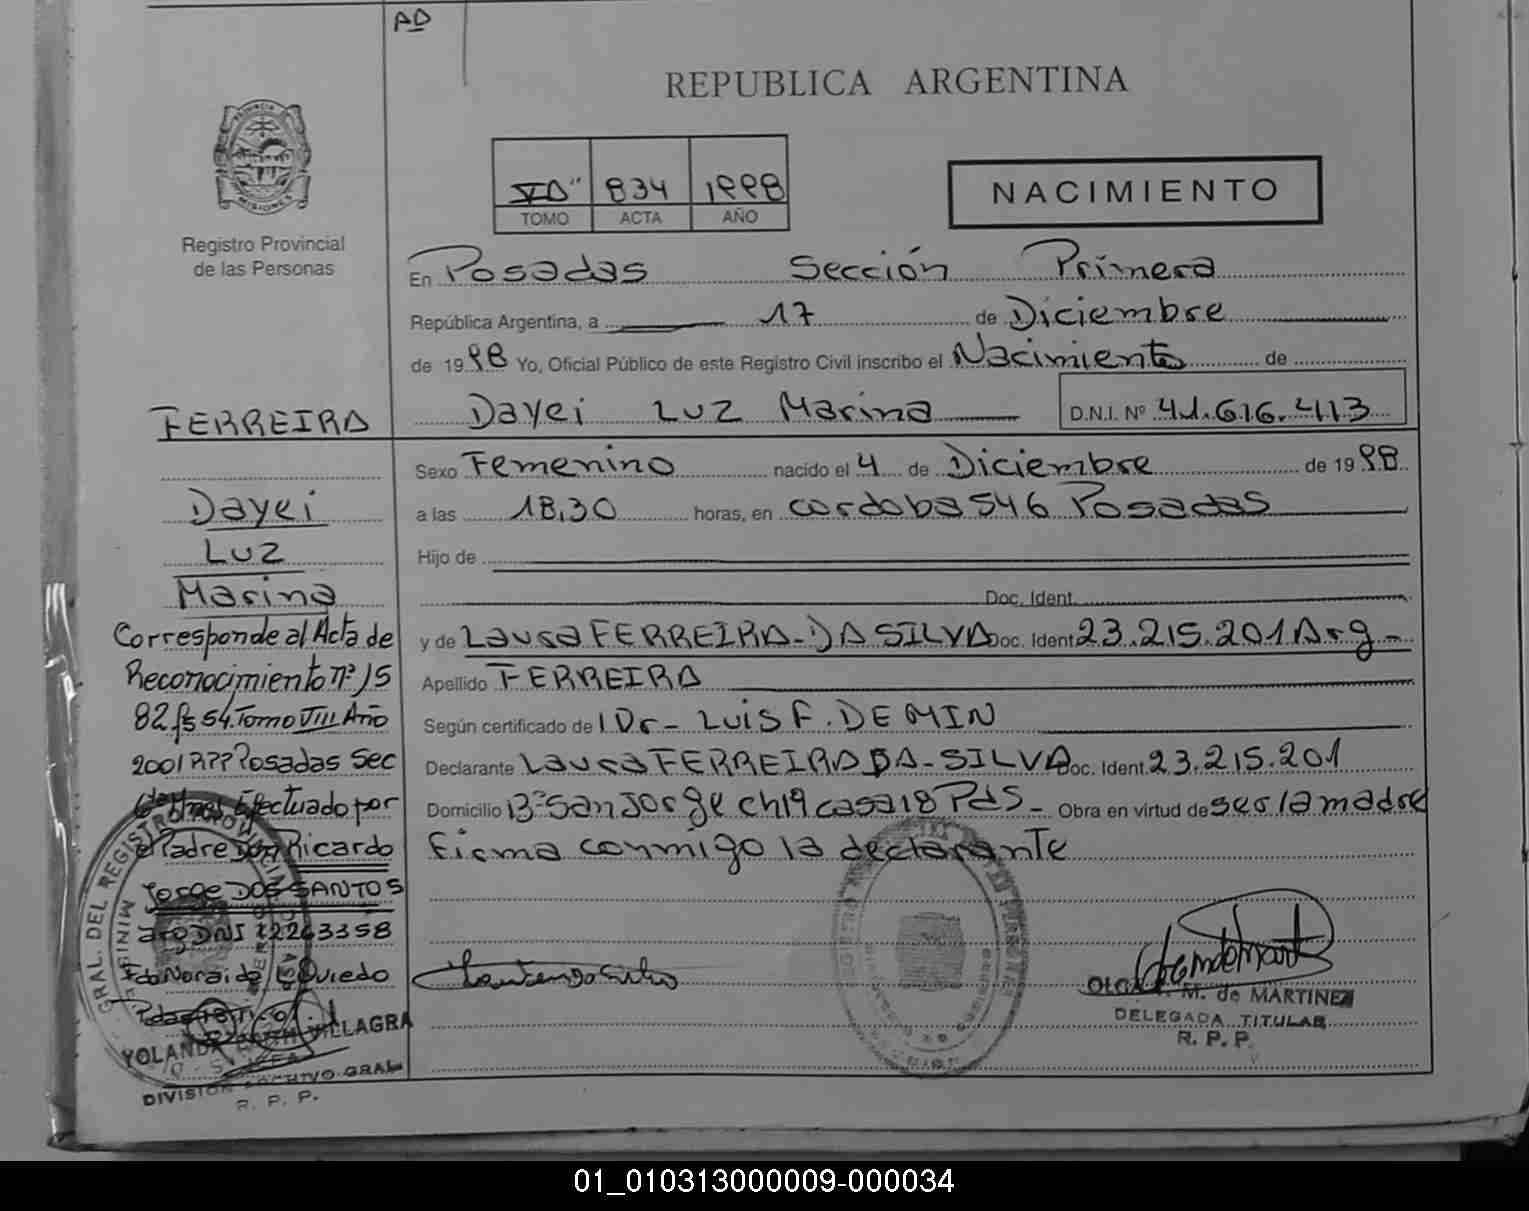 AD
REPUBLICA ARGENTINA
PROVINCIA
MISIONES
Registro Provincial
de las Personas
VI AD" 834 1998
TOMO ACTA AÑO
NACIMIENTO
En Posadas Sección Primera
República Argentina, a 17 de Diciembre
de 1998 Yo, Oficial Público de este Registro Civil inscribo el Nacimiento de
Dayei Luz Marina D.N.I. Nº 41.616.413
Sexo Femenino nacido el 4 de Diciembre de 1998
a las 18,30 horas, en cordoba 546 Posadas
Hijo de
Doc. Ident.
y de Laura FERREIRA-DA SILVA Doc. Ident 23.215.201 Arg-
Apellido FERREIRA
Según certificado de l Dr- Luis F. DEMIN
Declarante Laura FERREIRA DA-SILVA Doc. Ident. 23.215.201
Domicilio Bº San Jorge ch 19 casa 18 Pds- Obra en virtud de ser la madre
Firma conmigo la declarante
M. de MARTINEZ
DELEGADA TITULAR
R. P. P.
FERREIRA
Dayei
Luz
Marina
Corresponde al Acta de
Reconocimiento nº 15
82 fs 54. Tomo VIII Año
2001 RPP Posadas Sec
Efectuado por
el Padre Don Ricardo
Jorge DOS SANTOS
DNI 22263358
Oviedo
GRAL. DEL REGISTRO PROVINCIAL
YOLANDA VILLAGRA
DIVISION ARCHIVO GRAL
R. P. P.
01_010313000009-000034